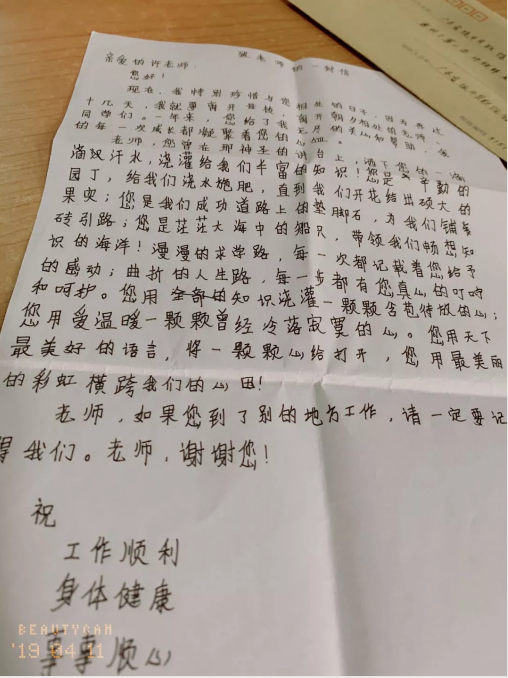 致老师的一封信
亲爱的许老师:
您好!
现在,我特别珍惜与您相处的日子,因为再过
十几天,我就要离开母校,离开朝夕相处的老师、
同学们。一年来,您给了我无尽的关心和帮助,我
的每一次成长都凝聚着您的心血。
老师,您曾在那神圣的讲台上,洒下您的一滴
滴汉汗水,浇灌给我们丰富的知识!您是辛勤的
园丁,给我们浇水施肥,直到我们开花结出硕大的
果实;您是我们成功道路上的垫脚石,为我们铺
砖引路;您是茫茫大海中的船只,带领我们畅想知
识的海洋!漫漫的求学路,每一次都记载着您给予
的感动;曲折的人生路,每一步都有您真心的叮咛
和呵护。您用全部的知识浇灌一颗颗含苞待放的心;
您用爱温暖一颗颗曾经冷落寂寞的心。您用天下
最美好的语言,将一颗颗心给打开,您用最美丽
的彩虹横跨我们的心田!
老师,如果您到了别的地方工作,请一定要记
得我们。老师,谢谢您!
祝
工作顺利
身体健康
事事顺心
BEAUTYCAM
'19 04 11